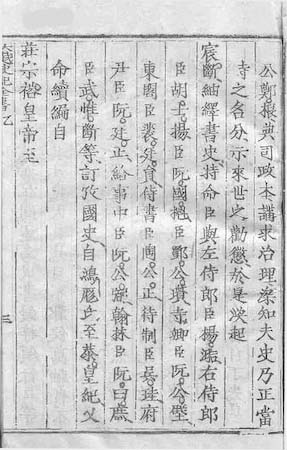 公鄭根典司政本講求治理深知夫史乃正當
寺之名分示來世之勸懲於是渙起
宸斷紬繹書史特命臣與左侍郎臣楊澔右侍郎
臣胡士揚臣阮國櫆臣鄧公瓆寺卿臣阮公璧
東閣臣裴廷員侍書臣陶公正待制臣吳珪府
尹臣阮廷正給事中臣阮公弼翰林臣阮曰庶
臣武惟斷等訂攷國史自鴻厖氏至恭皇紀又
命續編自
莊宗裕皇帝至
三